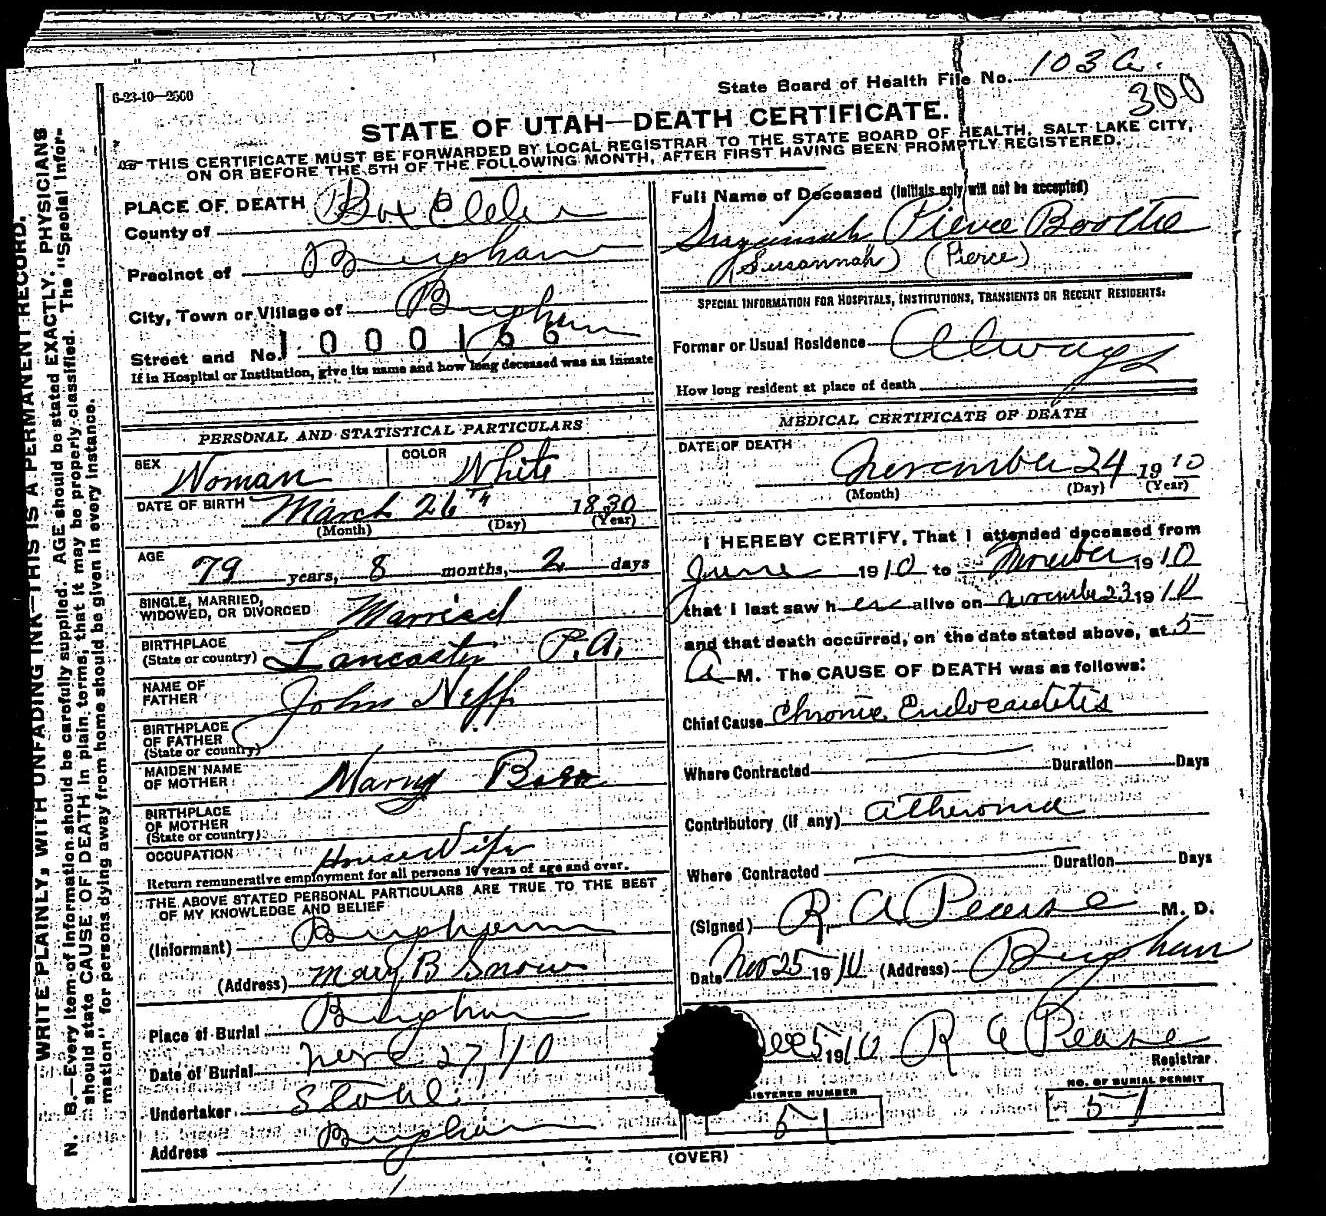 6-23-10—2500
State Board of Health File No. 103 a.
300
STATE OF UTAH—DEATH CERTIFICATE.
THIS CERTIFICATE MUST BE FORWARDED BY LOCAL REGISTRAR TO THE STATE BOARD OF HEALTH, SALT LAKE CITY,
ON OR BEFORE THE 5TH OF THE FOLLOWING MONTH, AFTER FIRST HAVING BEEN PROMPTLY REGISTERED.
WRITE PLAINLY, WITH UNFADING INK—THIS IS A PERMANENT RECORD.
N. B.—Every item of information should be carefully supplied. AGE should be stated EXACTLY. PHYSICIANS
should state CAUSE OF DEATH in plain terms, that it may be properly classified. The "Special Infor-
mation" for persons dying away from home should be given in every instance.
PLACE OF DEATH
County of Box Elder
Precinct of Brigham
City, Town or Village of Brigham
Street and No. 1000166
If in Hospital or Institution, give its name and how long deceased was an inmate
PERSONAL AND STATISTICAL PARTICULARS
SEX Woman COLOR White
DATE OF BIRTH March 26th 1830
(Month) (Day) (Year)
AGE 79 years, 8 months, 2 days
SINGLE, MARRIED,
WIDOWED, OR DIVORCED Married
BIRTHPLACE
(State or country) Lancaster P.A.
NAME OF
FATHER John Neff
BIRTHPLACE
OF FATHER
(State or country)
MAIDEN NAME
OF MOTHER Marry
BIRTHPLACE
OF MOTHER
(State or country)
OCCUPATION HouseWife
Return remunerative employment for all persons 10 years of age and over.
THE ABOVE STATED PERSONAL PARTICULARS ARE TRUE TO THE BEST
OF MY KNOWLEDGE AND BELIEF
(Informant) Brigham
(Address) Mary B Snow
Place of Burial Brigham
Date of Burial Nov 27, 10
Undertaker Stohl
Address Brigham
Full Name of Deceased (Initials only will not be accepted)
Suzannah Pierce Boothe
(Susannah) (Pierce)
SPECIAL INFORMATION FOR HOSPITALS, INSTITUTIONS, TRANSIENTS OR RECENT RESIDENTS:
Former or Usual Residence Always
How long resident at place of death
MEDICAL CERTIFICATE OF DEATH
DATE OF DEATH November 24 1910
(Month) (Day) (Year)
I HEREBY CERTIFY, That I attended deceased from
June 1910 to November 1910
that I last saw her alive on November 23 1910
and that death occurred, on the date stated above, at 5
A M. The CAUSE OF DEATH was as follows:
Chief Cause Chronic Endocarditis
Where Contracted Duration Days
Contributory (if any) atheroma
Where Contracted Duration Days
(Signed) R. A Pearse M. D.
Date Nov 25 1910 (Address) Brigham
Dec 5 1910 R A Pearse
Registrar
ISTERED NUMBER
51
NO. OF BURIAL PERMIT
51
(OVER)